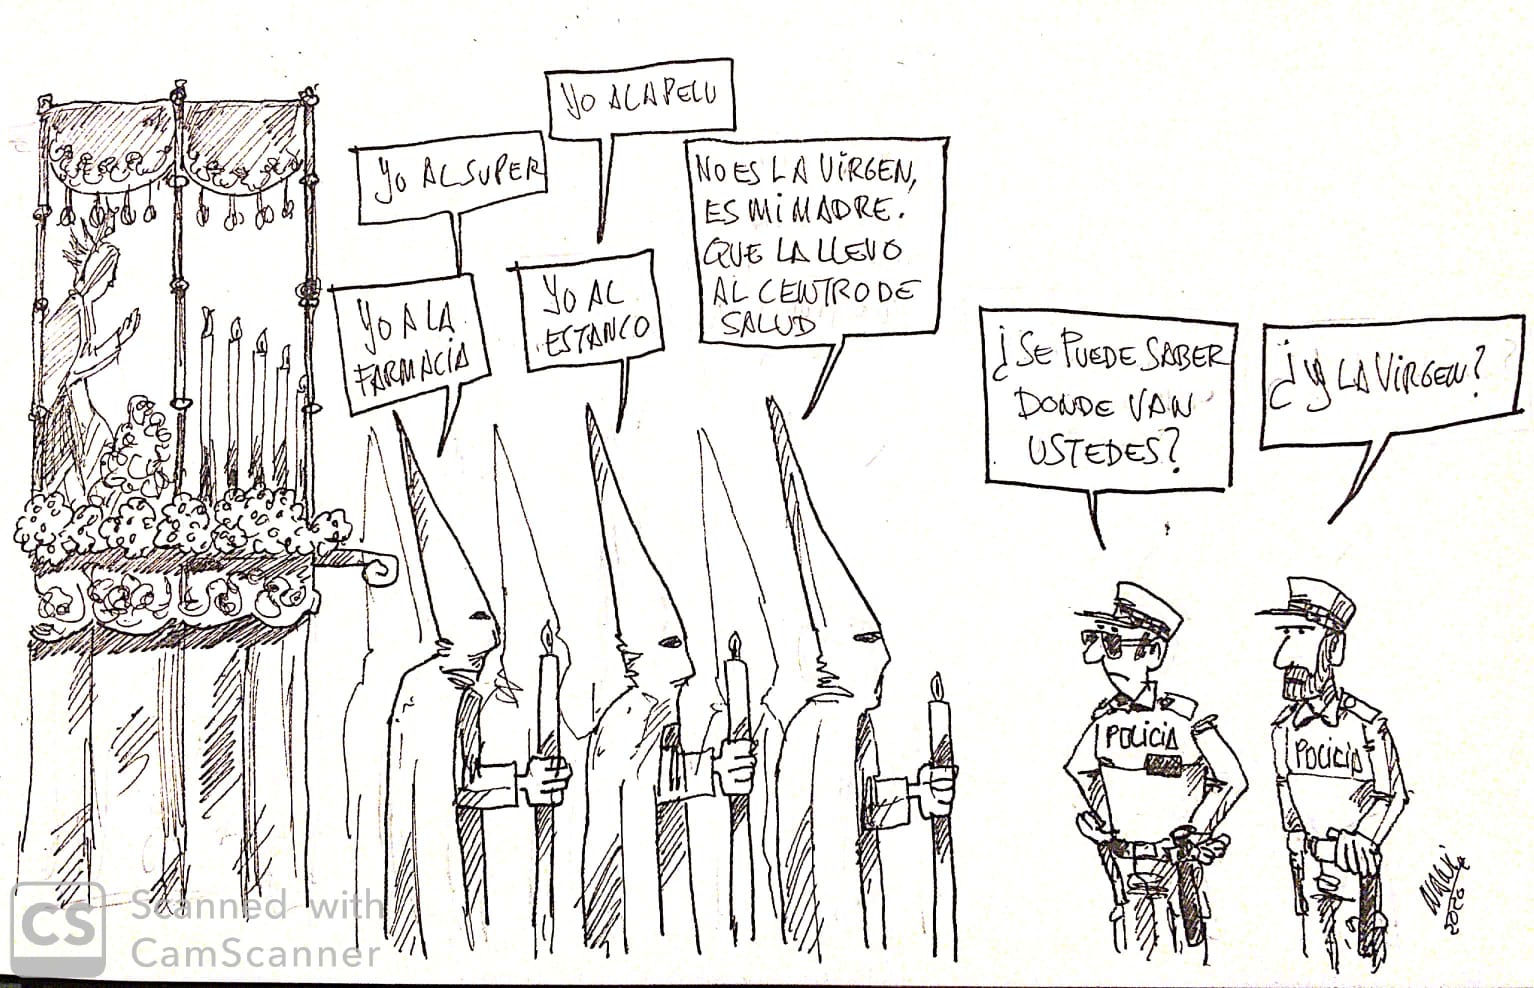 YO AL SUPER
YO A LA PELU
YO A LA
FARMACIA
YO AL
ESTANCO
NO ES LA VIRGEN,
ES MI MADRE.
QUE LA LLEVO
AL CENTRO DE
SALUD
¿SE PUEDE SABER
DONDE VAN
USTEDES?
¿Y LA VIRGEN?
POLICIA
POLICIA
2020
CS
Scanned with
CamScanner